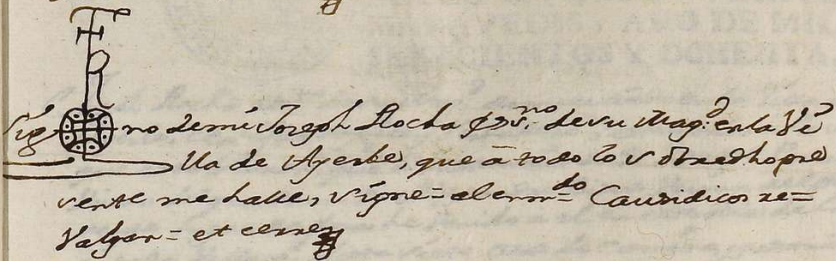 Sig no de mi Joseph Rocha Ess.no de su Mag.d en la Vi
lla de Ayerbe, que a todo lo sobredho pre
sente me halle, signe = el enm.do Causidicos =
Valgan = et cerre